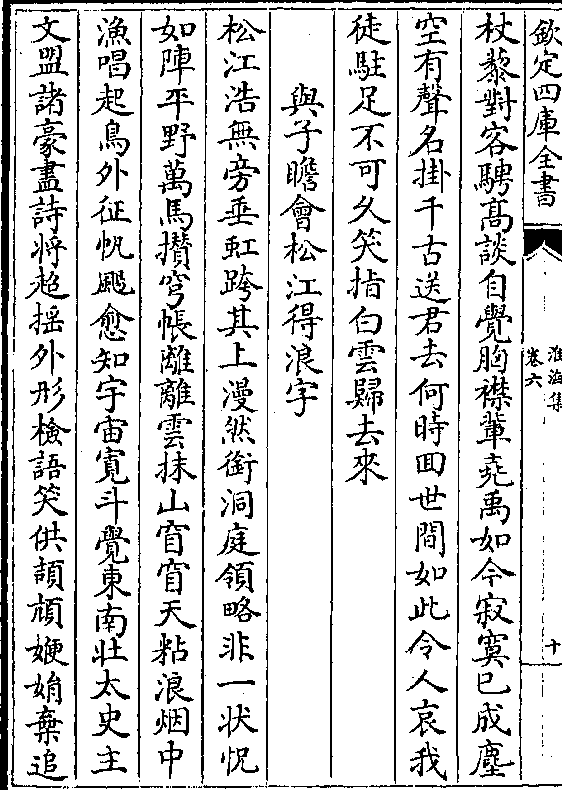 欽定四庫全書
淮海集
卷六
十
杖藜對客騁髙談自覺胸襟輩堯禹如今寂寞已成塵
空有聲名掛千古送君去何時囬世間如此令人哀我
徒駐足不可久笑指白雲歸去來
與子瞻會松江得浪字
松江浩無旁垂虹跨其上漫然銜洞庭領略非一狀怳
如陣平野萬馬攢穹帳離離雲抹山窅窅天粘浪烟中
漁唱起鳥外征帆颺愈知宇宙寛斗覺東南壯太史主
文盟諸豪盡詩將超揺外形檢語笑供頡頏嬋娟棄追